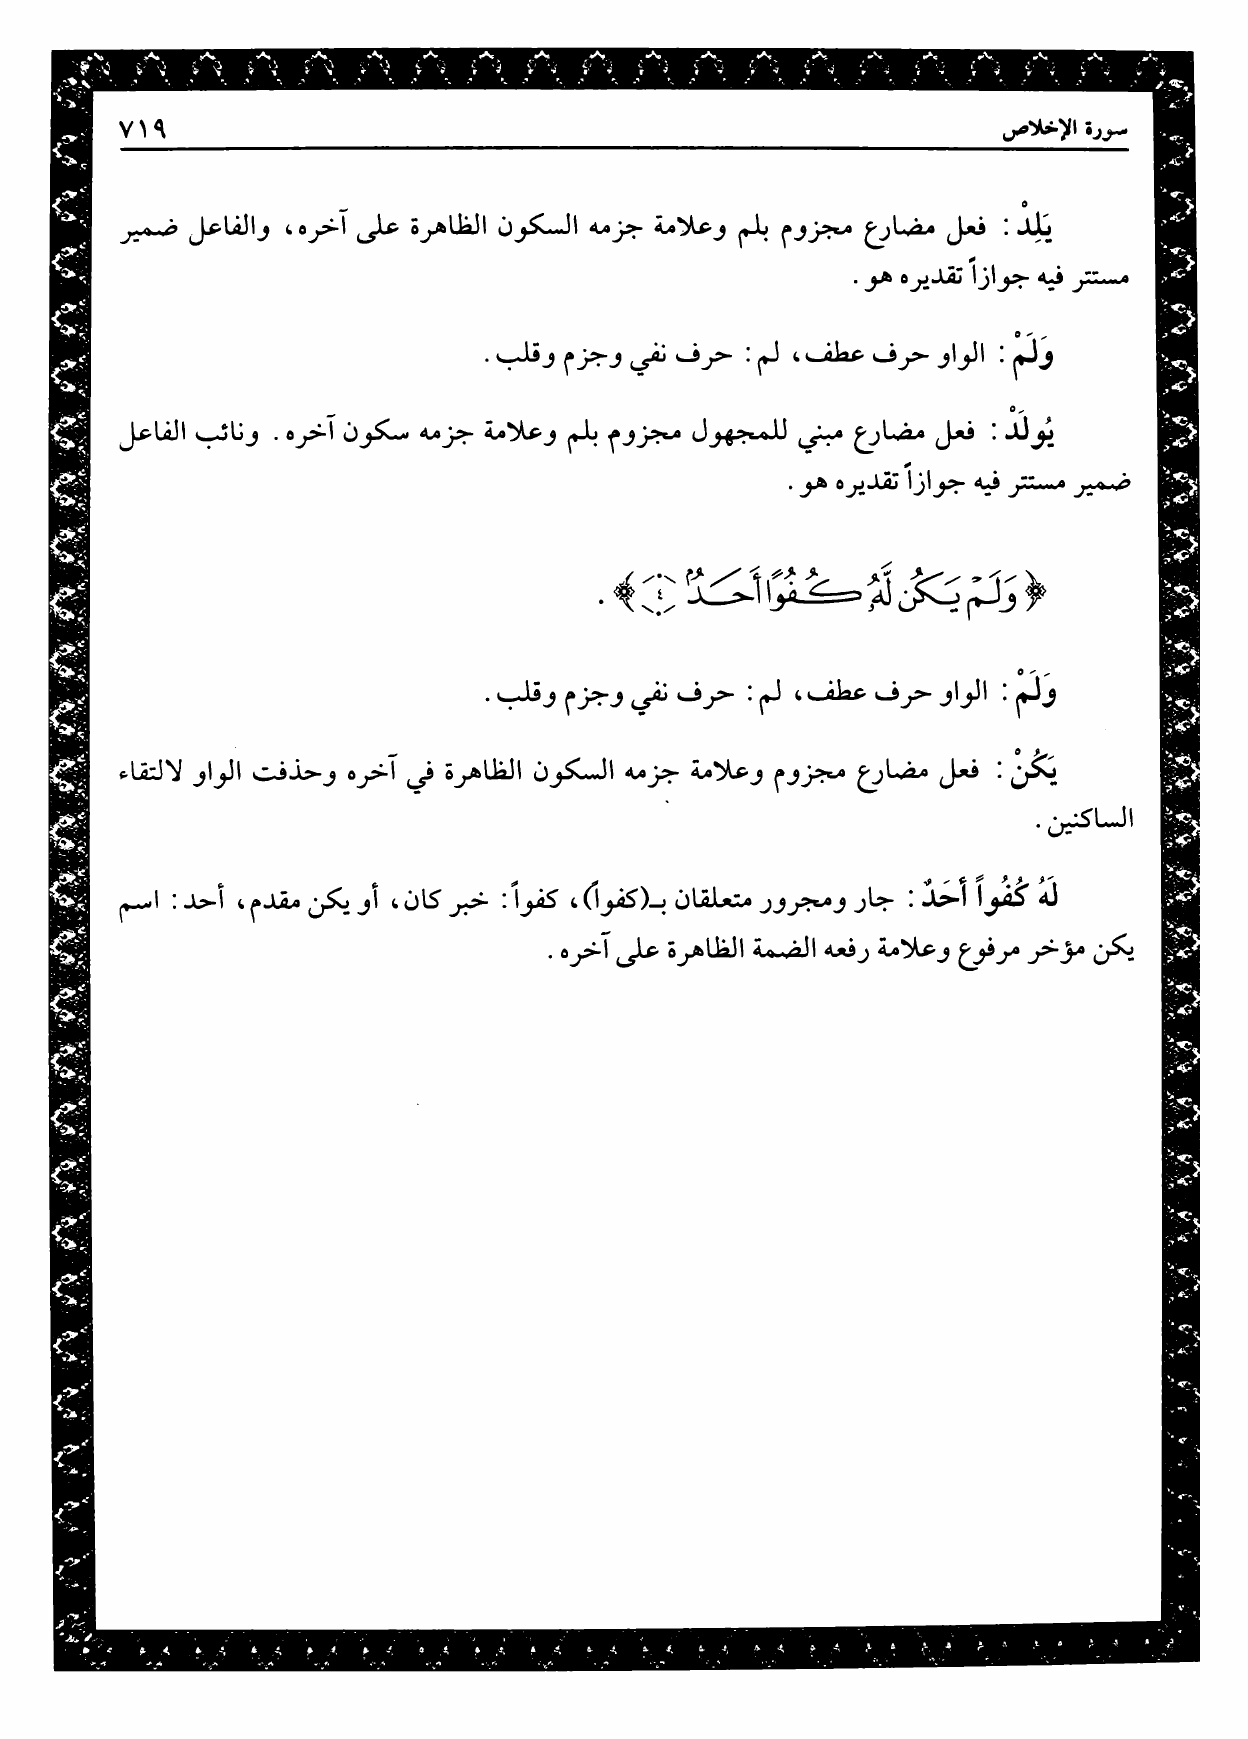 سورة الإخلاص ٧١٩
يَلِدْ : فعل مضارع مجزوم بلم وعلامة جزمه السكون الظاهرة على آخره، والفاعل ضمير
مستتر فيه جوازاً تقديره هو .
وَلَمْ : الواو حرف عطف، لم : حرف نفي وجزم وقلب .
يُولَدْ : فعل مضارع مبني للمجهول مجزوم بلم وعلامة جزمه سكون آخره . ونائب الفاعل
ضمير مستتر فيه جوازاً تقديره هو .
﴿ وَلَمْ يَكُن لَّهُۥ كُفُوًا أَحَدٌۢ ٤ ﴾ .
وَلَمْ : الواو حرف عطف، لم : حرف نفي وجزم وقلب .
يَكُنْ : فعل مضارع مجزوم وعلامة جزمه السكون الظاهرة في آخره وحذفت الواو لالتقاء
الساكنين .
لَهُ كُفُواً أَحَدٌ : جار ومجرور متعلقان بـ(كفواً)، كفواً : خبر كان، أو يكن مقدم، أحد : اسم
يكن مؤخر مرفوع وعلامة رفعه الضمة الظاهرة على آخره .